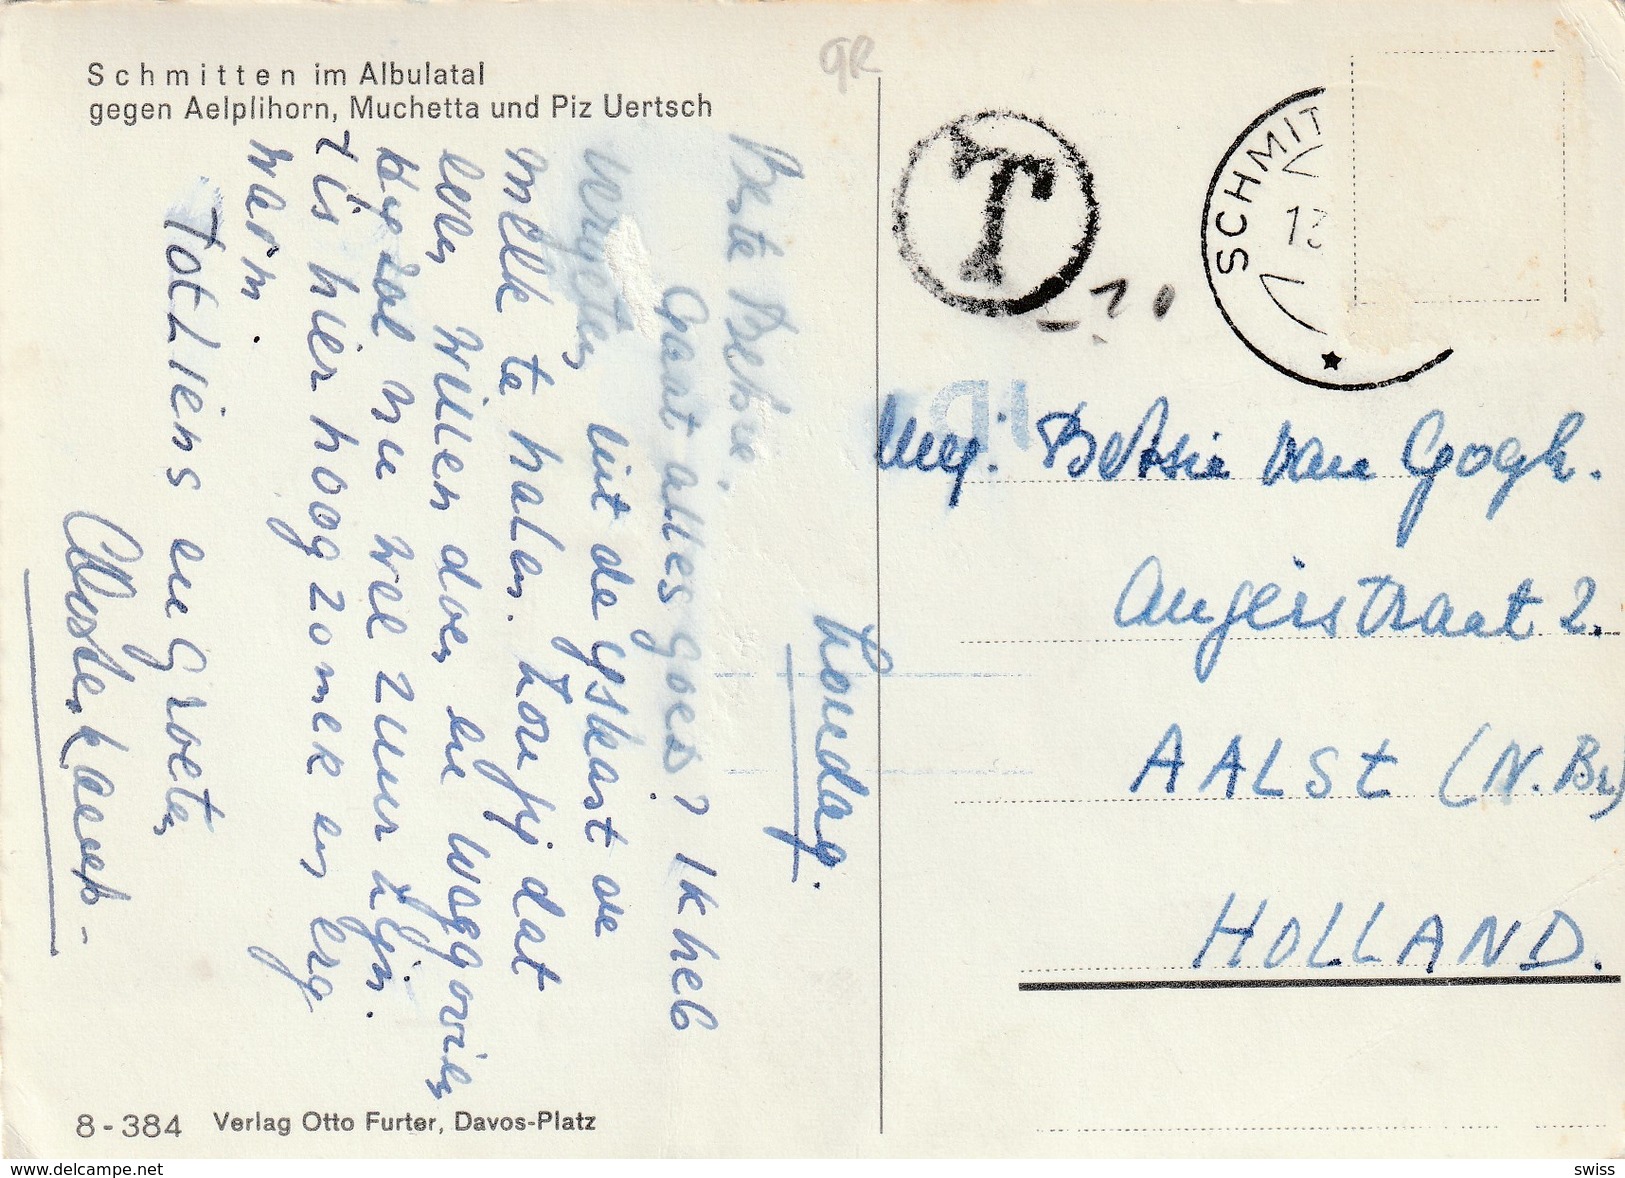 Schmitten im Albulatal
gegen Aelplihorn, Muchetta und Piz Uertsch
GR
T
SCHMIT
Zondag.
Beste Betsie,
Gaat alles goed? Ik heb
vergeten
uit de yskast de
melk te halen. Zou jij dat
even willen doen en weggooien
Hij zal nu wel zuur zijn.
't is hier hoog zomer en erg
warm.
Tot ziens en groeten
Mej. Betsie van Gogh.
Angerstraat 2.
AALST (N.Br)
HOLLAND.
8-384 Verlag Otto Furter, Davos-Platz
www.delcampe.net
swiss